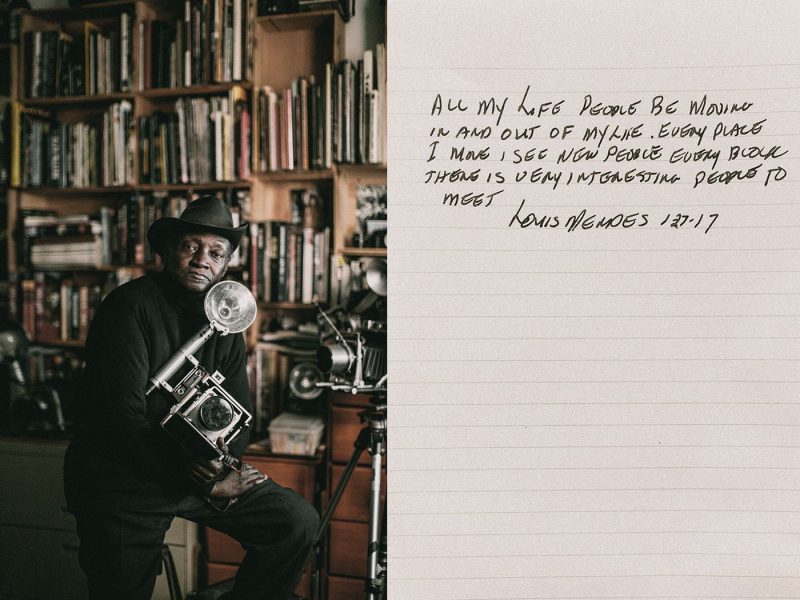 ALL MY LIFE PEOPLE BE MOVING
IN AND OUT OF MY LIFE. EVERY PLACE
I MOVE I SEE NEW PEOPLE EVERY BLOCK
THERE IS VERY INTERESTING PEOPLE TO
MEET
LOUIS MENDES 1-27-17